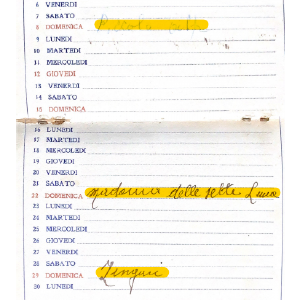 6 VENERDI
7 SABATO
8 DOMENICA Piccolo
9 LUNEDI
10 MARTEDI
11 MERCOLEDI
12 GIOVEDI
13 VENERDI
14 SABATO
15 DOMENICA
16 LUNEDI
17 MARTEDI
18 MERCOLEDI
19 GIOVEDI
20 VENERDI
21 SABATO
22 DOMENICA madonna delle sette Luna
23 LUNEDI
24 MARTEDI
25 MERCOLEDI
26 GIOVEDI
27 VENERDI
28 SABATO
29 DOMENICA Zingari
30 LUNEDI